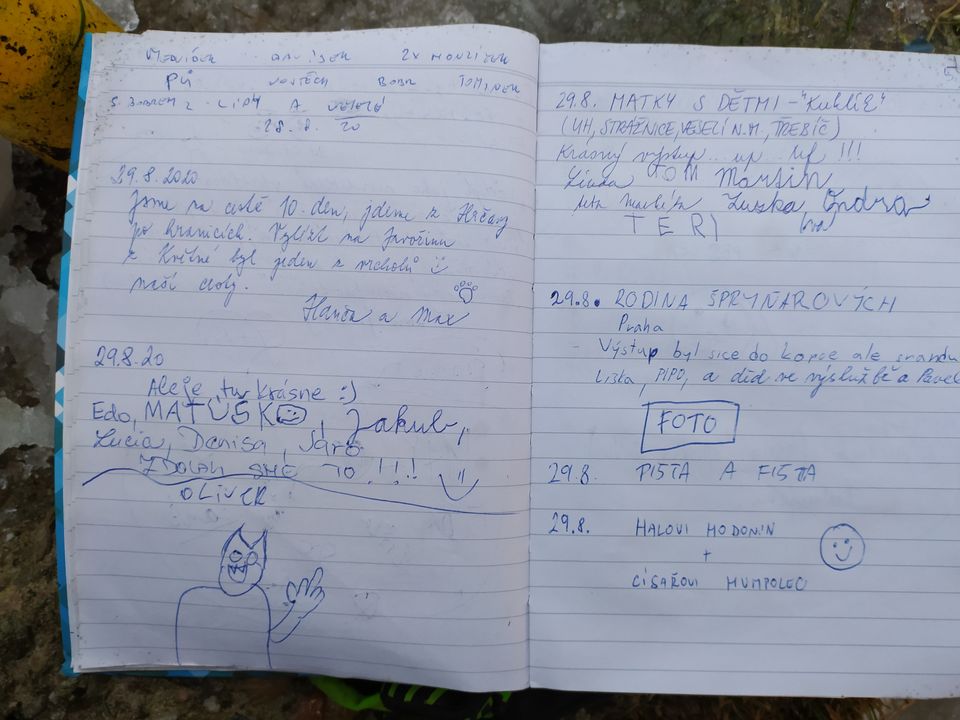 PŮ VOJTĚCH BOBR TOMINEK
S BOBREM Z LÍPY A VESELÉ
28. 8. 20
29.8.2020
Jsme na cestě 10. den, jdeme z
po hranicích. Výšlap na Javořinu
z Květné byl jeden z vrcholů :)
naší cesty.
Hanča a Max
29.8.20
Aleje tu krásne :)
Edo, MATÚŠKO, Jakub,
Lucia, Denisa, Jaro
ZDOLALI SME TO !!!
OLIVER
29.8. MATKY S DĚTMI - "Kuklík"
(UH, STRÁŽNICE, VESELÍ N.M., TŘEBÍČ)
Krásný výstup.. up.. uf !!!
Linda TOM Martin
Luzka Ondra
TERI
29.8. RODINA ŠPRYŇAROVÝCH
Praha
- Výstup byl sice do kopce ale srandu
Liška, PIPO, a děd ve výslužbě a Pavel
FOTO
29.8. PIŠTA A FIŠTA
29.8. HALOVI HODONÍN
+
CÍSAŘOVI HUMPOLEC